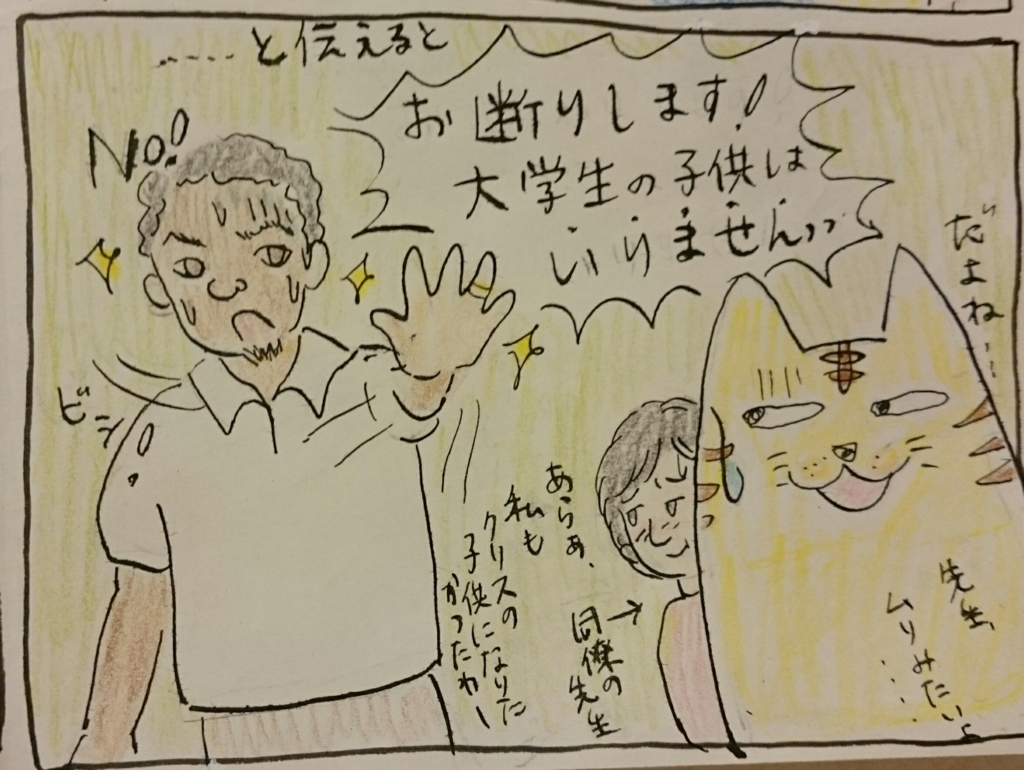 ‥‥‥と伝えると
お断りします!
大学生の子供は
いりませんッッ
No!
ビシッ
だよね…
あらぁ、
私も
クリスの
子供になりた
かったわー
同僚の
先生
先生、
ムリみたいよ
・・・